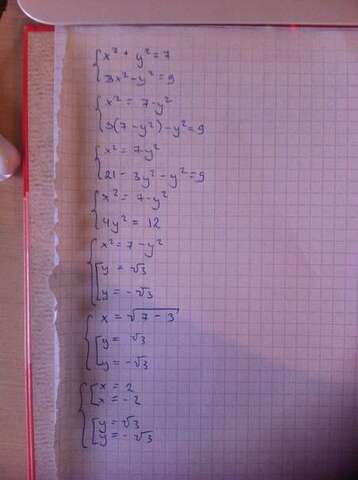 x² + y² = 7
3x² - y² = 9
x² = 7 - y²
3(7 - y²) - y² = 9
x² = 7 - y²
21 - 3y² - y² = 9
x² = 7 - y²
4y² = 12
x² = 7 - y²
y = √3
y = -√3
x = √7 - 3
y = √3
y = -√3
x = 2
x = -2
y = √3
y = -√3